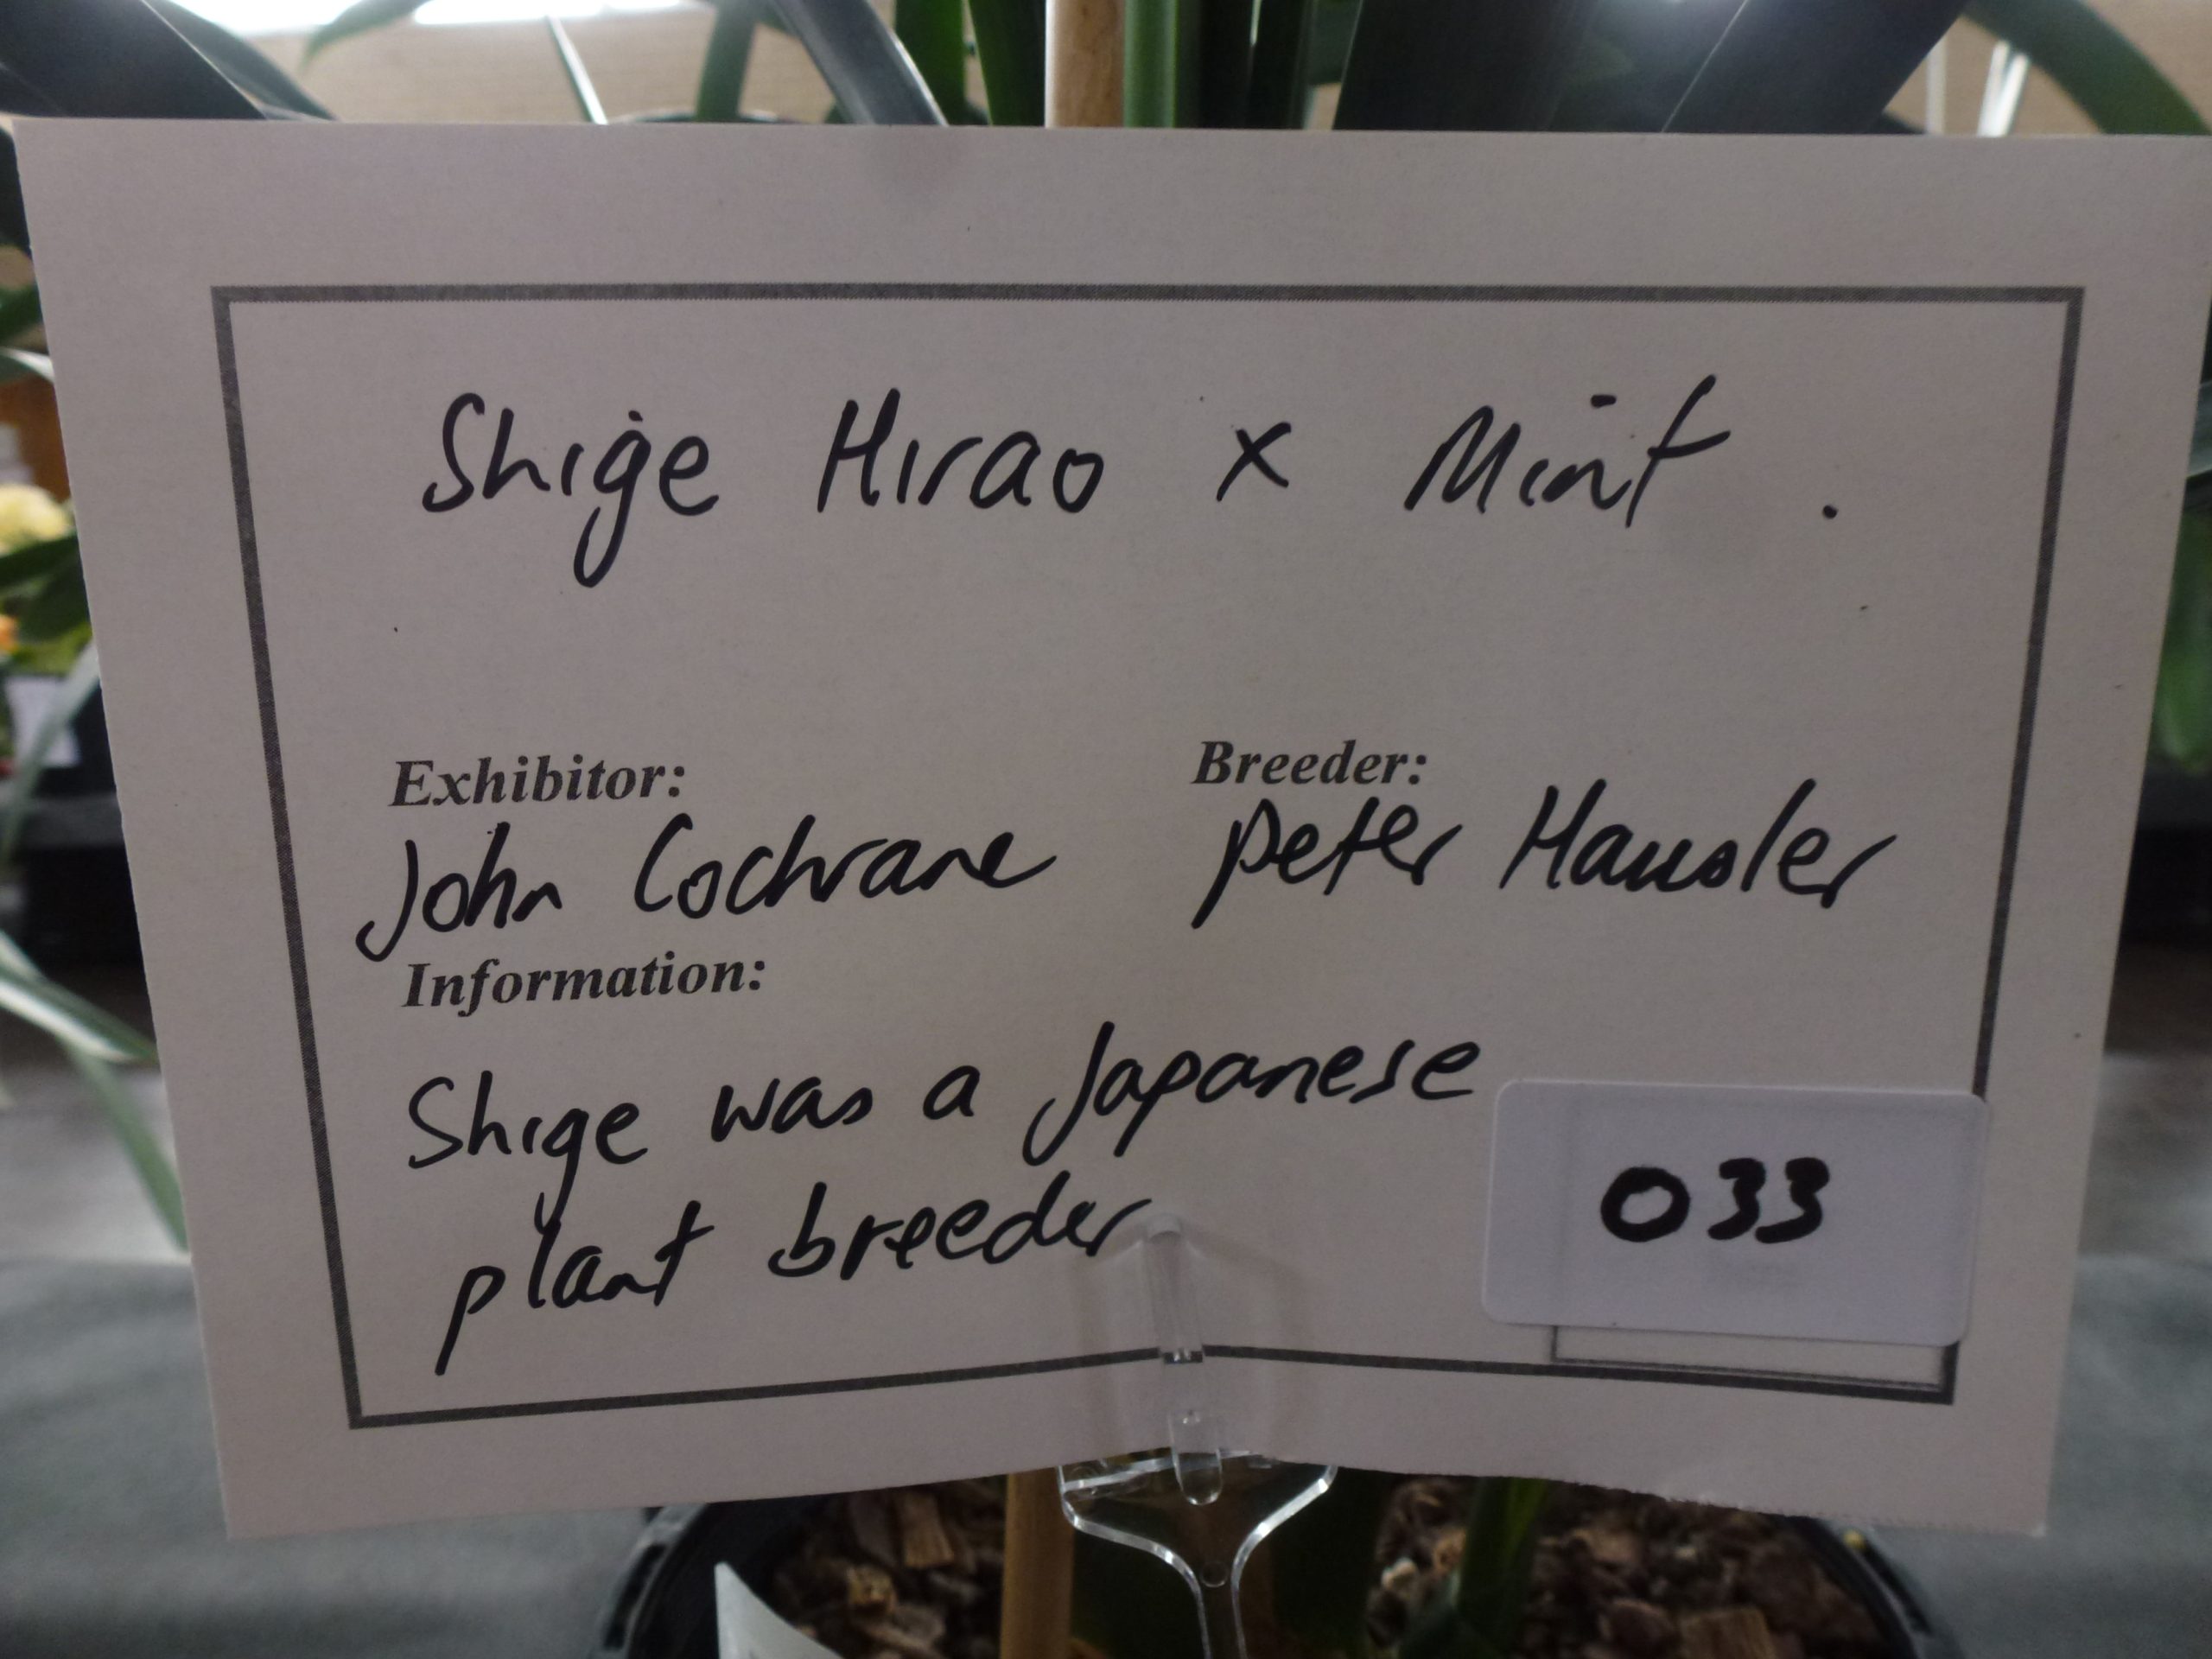 Shige Hirao x Mint.
Exhibitor:
John Cochrane
Breeder:
Peter Hausler
Information:
Shige was a Japanese
plant breeder
033